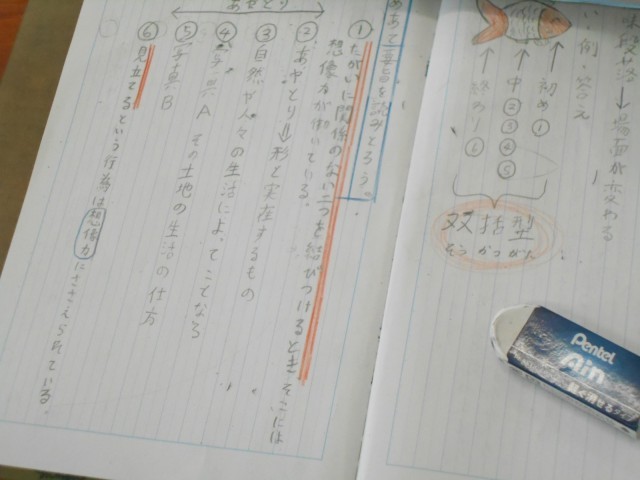 段落→場面が変わる
い 例・答え
初め ①
中 ② ③ ④ ⑤
終わり ⑥
双括型
そうかつがた
めあて 要旨を読みとろう。
①たがいに関係のない二つを結びつけるとき そこには
想像力が働いている。
②あやとり⇒形と実在するもの
③自然や人々の生活によってことなる
④写真A その土地の生活の仕方
⑤写真B
⑥見立てるという行為は想像力にささえられている。
あやとり
Pentel
Ain